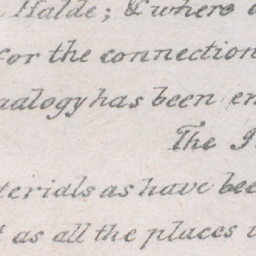 Halde; & where
for the connection
analogy has been
The
terials as have bee
as all the places